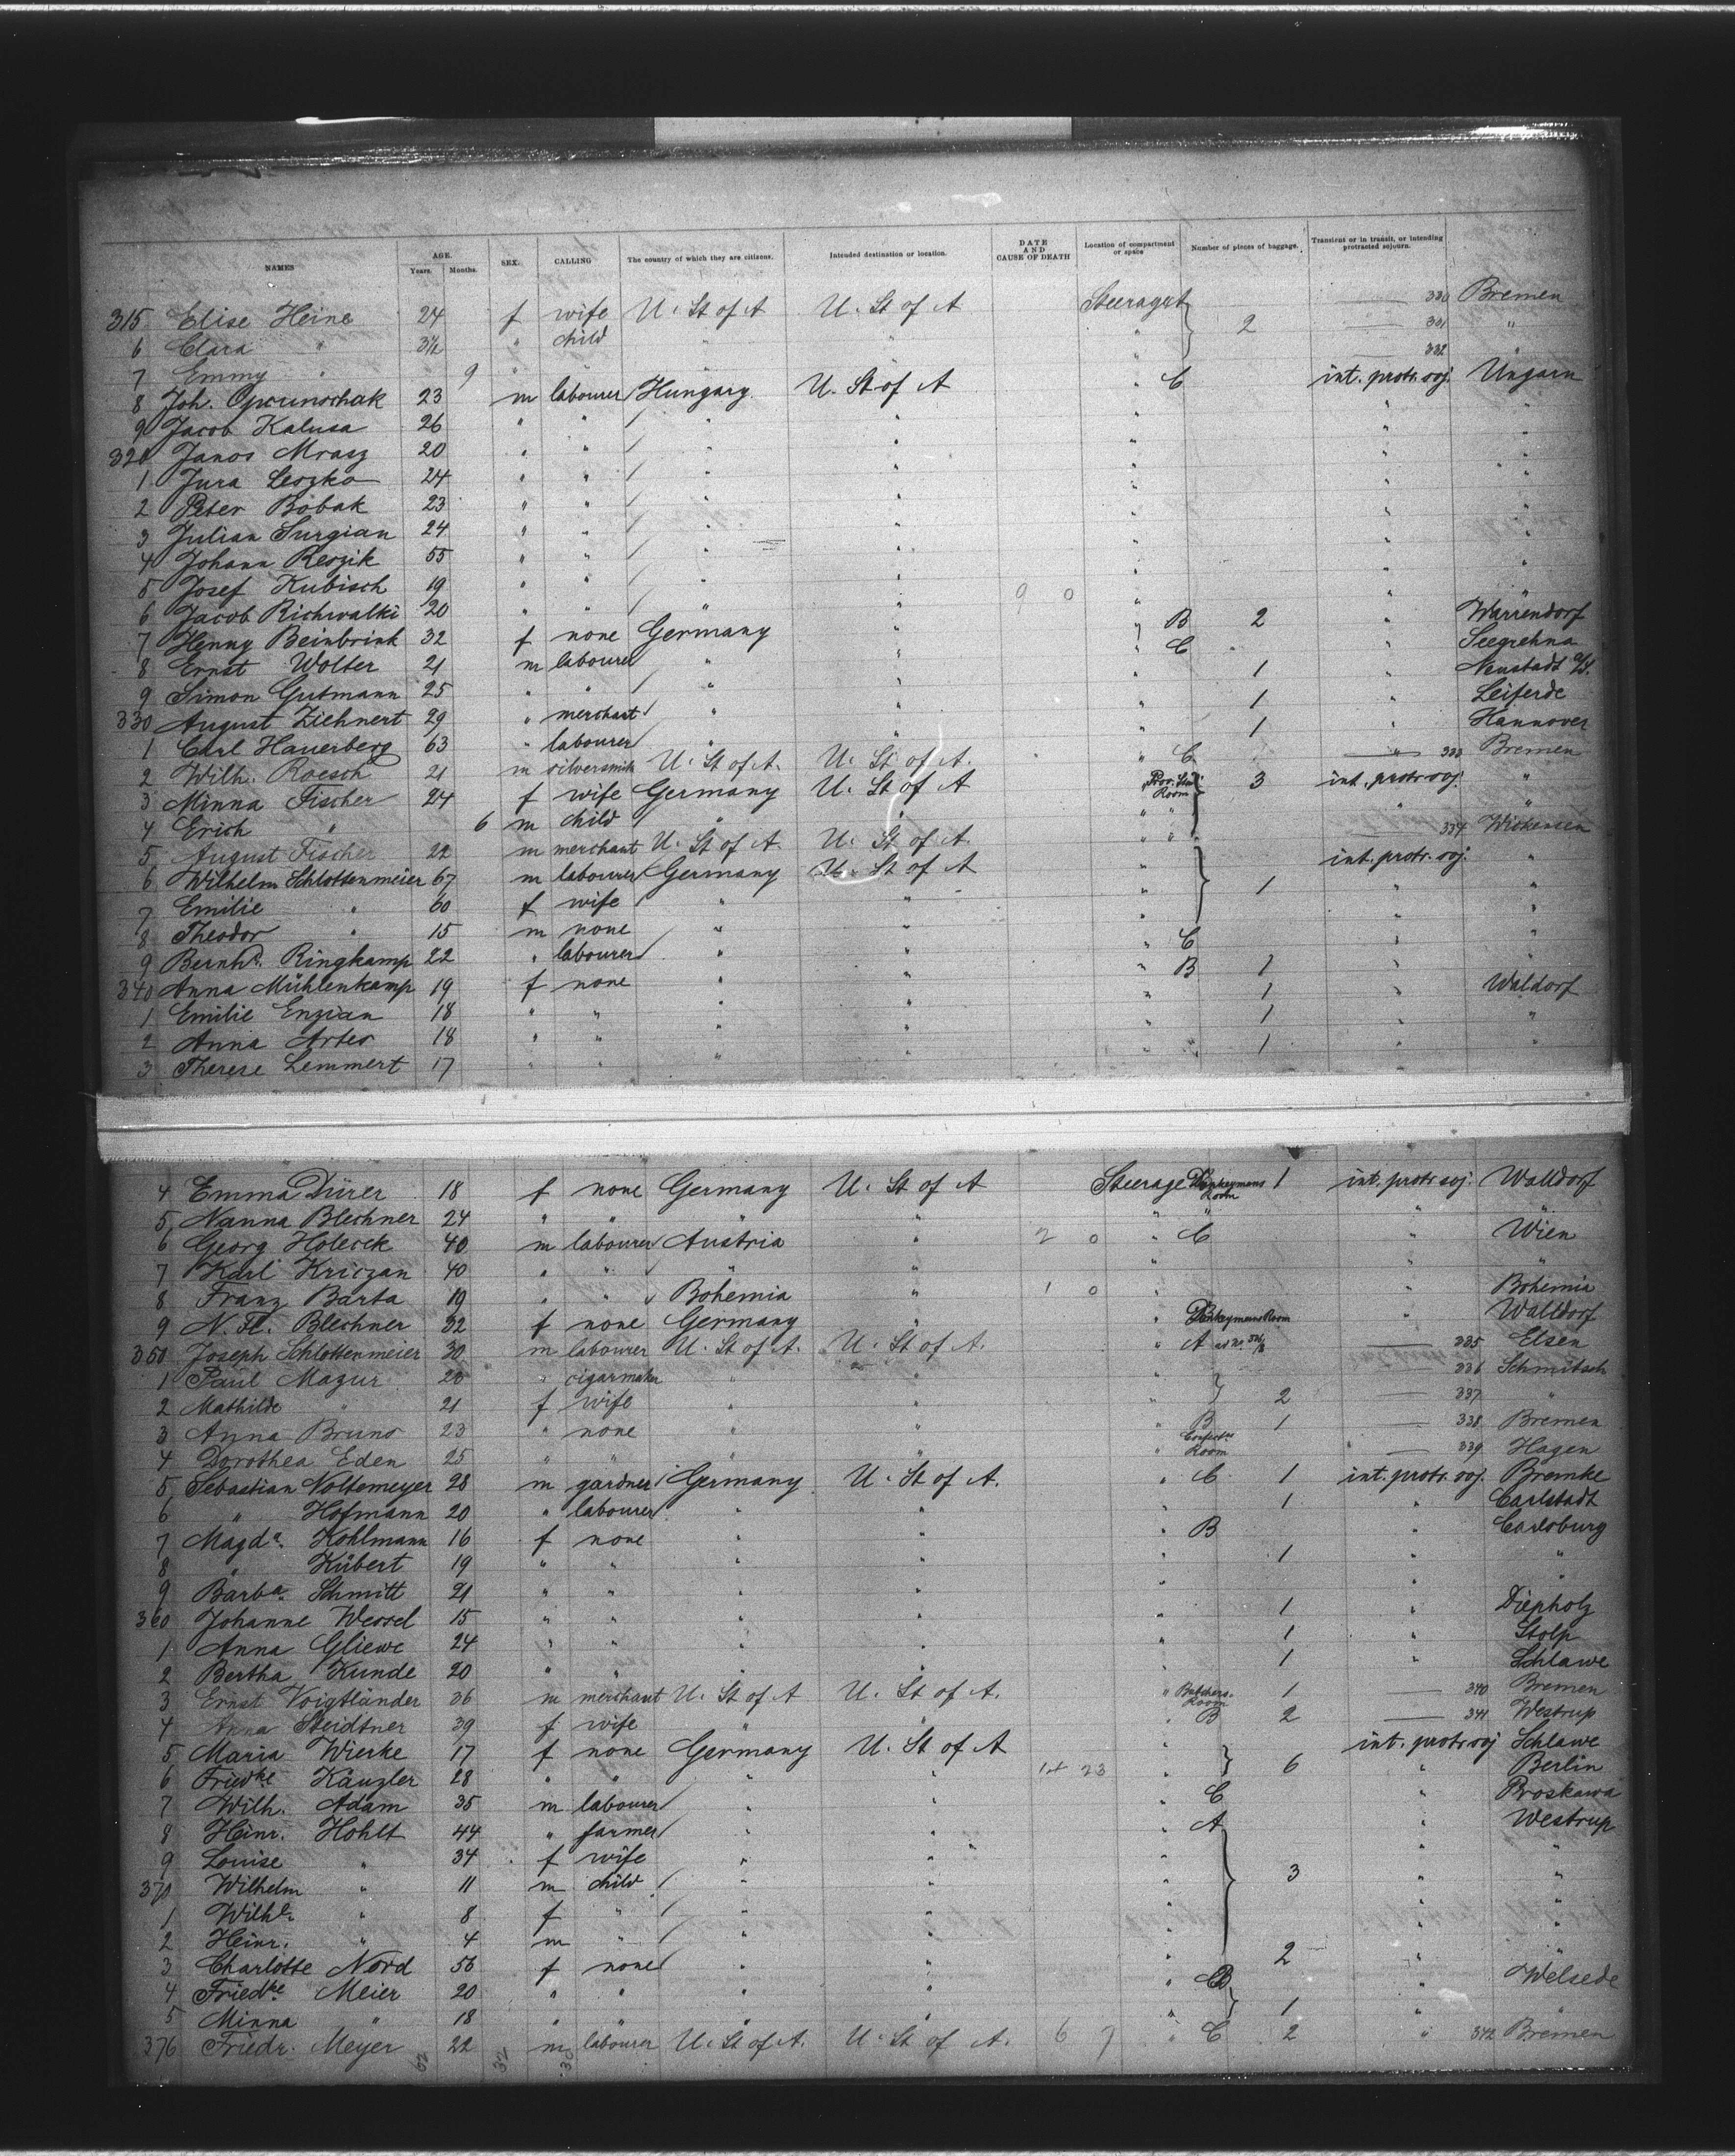 NAMES AGE. Years. Months. SEX. CALLING The country of which they are citizens. Intended destination or location. DATE AND CAUSE OF DEATH Location of compartment or space Number of pieces of baggage. Transient or in transit, or intending protracted sojourn.
315 Elise Heine 24 f wife U. St of A U. St of A Steerage 330 Bremen
6 Clara " 3½ " child " " " 2 331 "
7 Emmy " 9 " " " 332 "
8 Joh. 23 m labourer Hungary U. St of A " C int. protr. soj. Ungarn
9 Jacob Kalusa 26 " " " " " " "
320 Janos Mrasz 20 " " " " " " "
1 Jura Leszko 24 " " " " " " "
2 Peter Bobak 23 " " " " " " "
3 Julian Surgian 24 " " " " " " "
4 Johann Reszik 55 " " " " " " "
5 Josef Kubisch 19 " " " " 9 0 " " "
6 Jacob Richwalki 20 " " " " " " "
7 Henny Beinbrink 32 f none Germany " " B 2 " Warrendorf
8 Ernst Wolter 21 m labourer " " " C " Seegrehna
9 Simon Gutmann 25 " " " " " 1 " Neustadt
330 August Ziehnert 29 " merchant " " " 1 " Leiferde
1 Carl Hauerberg 63 " labourer " " " 1 " Hannover
2 Wilh. Roesch 21 m silversmith U. St of A. U. St of A. " C. 333 Bremen
3 Minna Fischer 24 f wife Germany U. St of A Room 3 int. protr. soj. "
4 Erich " 6 m child " " " " " "
5 August Fischer 22 m merchant U. St of A. U. St of A. " " 334 Wickensen
6 Wilhelm Schlottenmeier 67 m labourer Germany U. St of A " int. protr. soj. "
7 Emilie " 60 f wife " " " 1 " "
8 Theodor " 15 m none " " " " "
9 Bernhd. Ringkamp 22 " labourer " " " C " "
340 Anna Mühlenkamp 19 f none " " " B 1 " "
1 Emilie Enzian 18 " " " " " 1 " Waldorf
2 Anna Artes 18 " " " " " 1 " "
3 Therese Lemmert 17 " " " " " 1 " "
4 Emma Dürer 18 f none Germany U. St of A Steerage Donkeymans Room 1 int. protr soj. Walldorf
5 Nanna Blechner 24 " " " " " " " "
6 Georg Holecek 40 m labourer Austria " 2 0 " C " Wien
7 Karl Kriczan 40 " " " " " " "
8 Franz Barta 19 " " Bohemia " 1 0 " " Bohemia
9 N. Fl. Blechner 32 f none Germany " " Donkeymans Room " Walldorf
350 Joseph Schlottenmeier 30 m labourer U. St of A. U. St of A. " A 335 Elsen
1 Paul Mazur 28 " cigarmaker " " " 336 Schmitsch
2 Mathilde " 21 f wife " " " 2 337 "
3 Anna Bruns 23 " none " " " B 1 338 Bremen
4 Dorothea Eden 25 " " " " " Room 339 Hagen
5 Sebastian Noltemeyer 28 m gardner Germany U. St of A. " C. 1 int. protr. soj. Bremke
6 " Hofmann 20 " labourer " " " 1 " Carlstadt
7 Magda. Kohlmann 16 f none " " " B " Carlsburg
8 " Kübert 19 " " " " " 1 " "
9 Barba. Schmitt 21 " " " " " "
360 Johanne Wessel 15 " " " " " 1 " Diepholz
1 Anna Gliewe 24 " " " " " 1 " Stolp
2 Bertha Kunde 20 " " " " 1 " Schlawe
3 Ernst Voigtländer 36 m merchant U. St of A U. St of A. " Butchers. Room 1 340 Bremen
4 Anna Steidtner 39 f wife " " " B 2 341 Westrup
5 Maria Wierke 17 f none Germany U. St of A " int. protr. soj Schlawe
6 Friedke Känzler 28 " " " " 14 23 " 6 " Berlin
7 Wilh. Adam 35 m labourer " " " C " Proskawa
8 Heinr. Hohlt 44 " farmer " " " A " Westrup
9 Louise " 34 f wife " " " " "
370 Wilhelm " 11 m child " " " 3 " "
1 Wilhe. " 8 f " " " " " "
2 Heinr. " 4 m " " " " " "
3 Charlotte Nord 56 f none " " " 2 " "
4 Friedke. Meier 20 " " " " " B " Welsede
5 Minna " 18 " " " " " 1 " "
376 Friedr. Meyer 22 m labourer U. St of A. U. St of A. 6 7 " C 2 " 342 Bremen